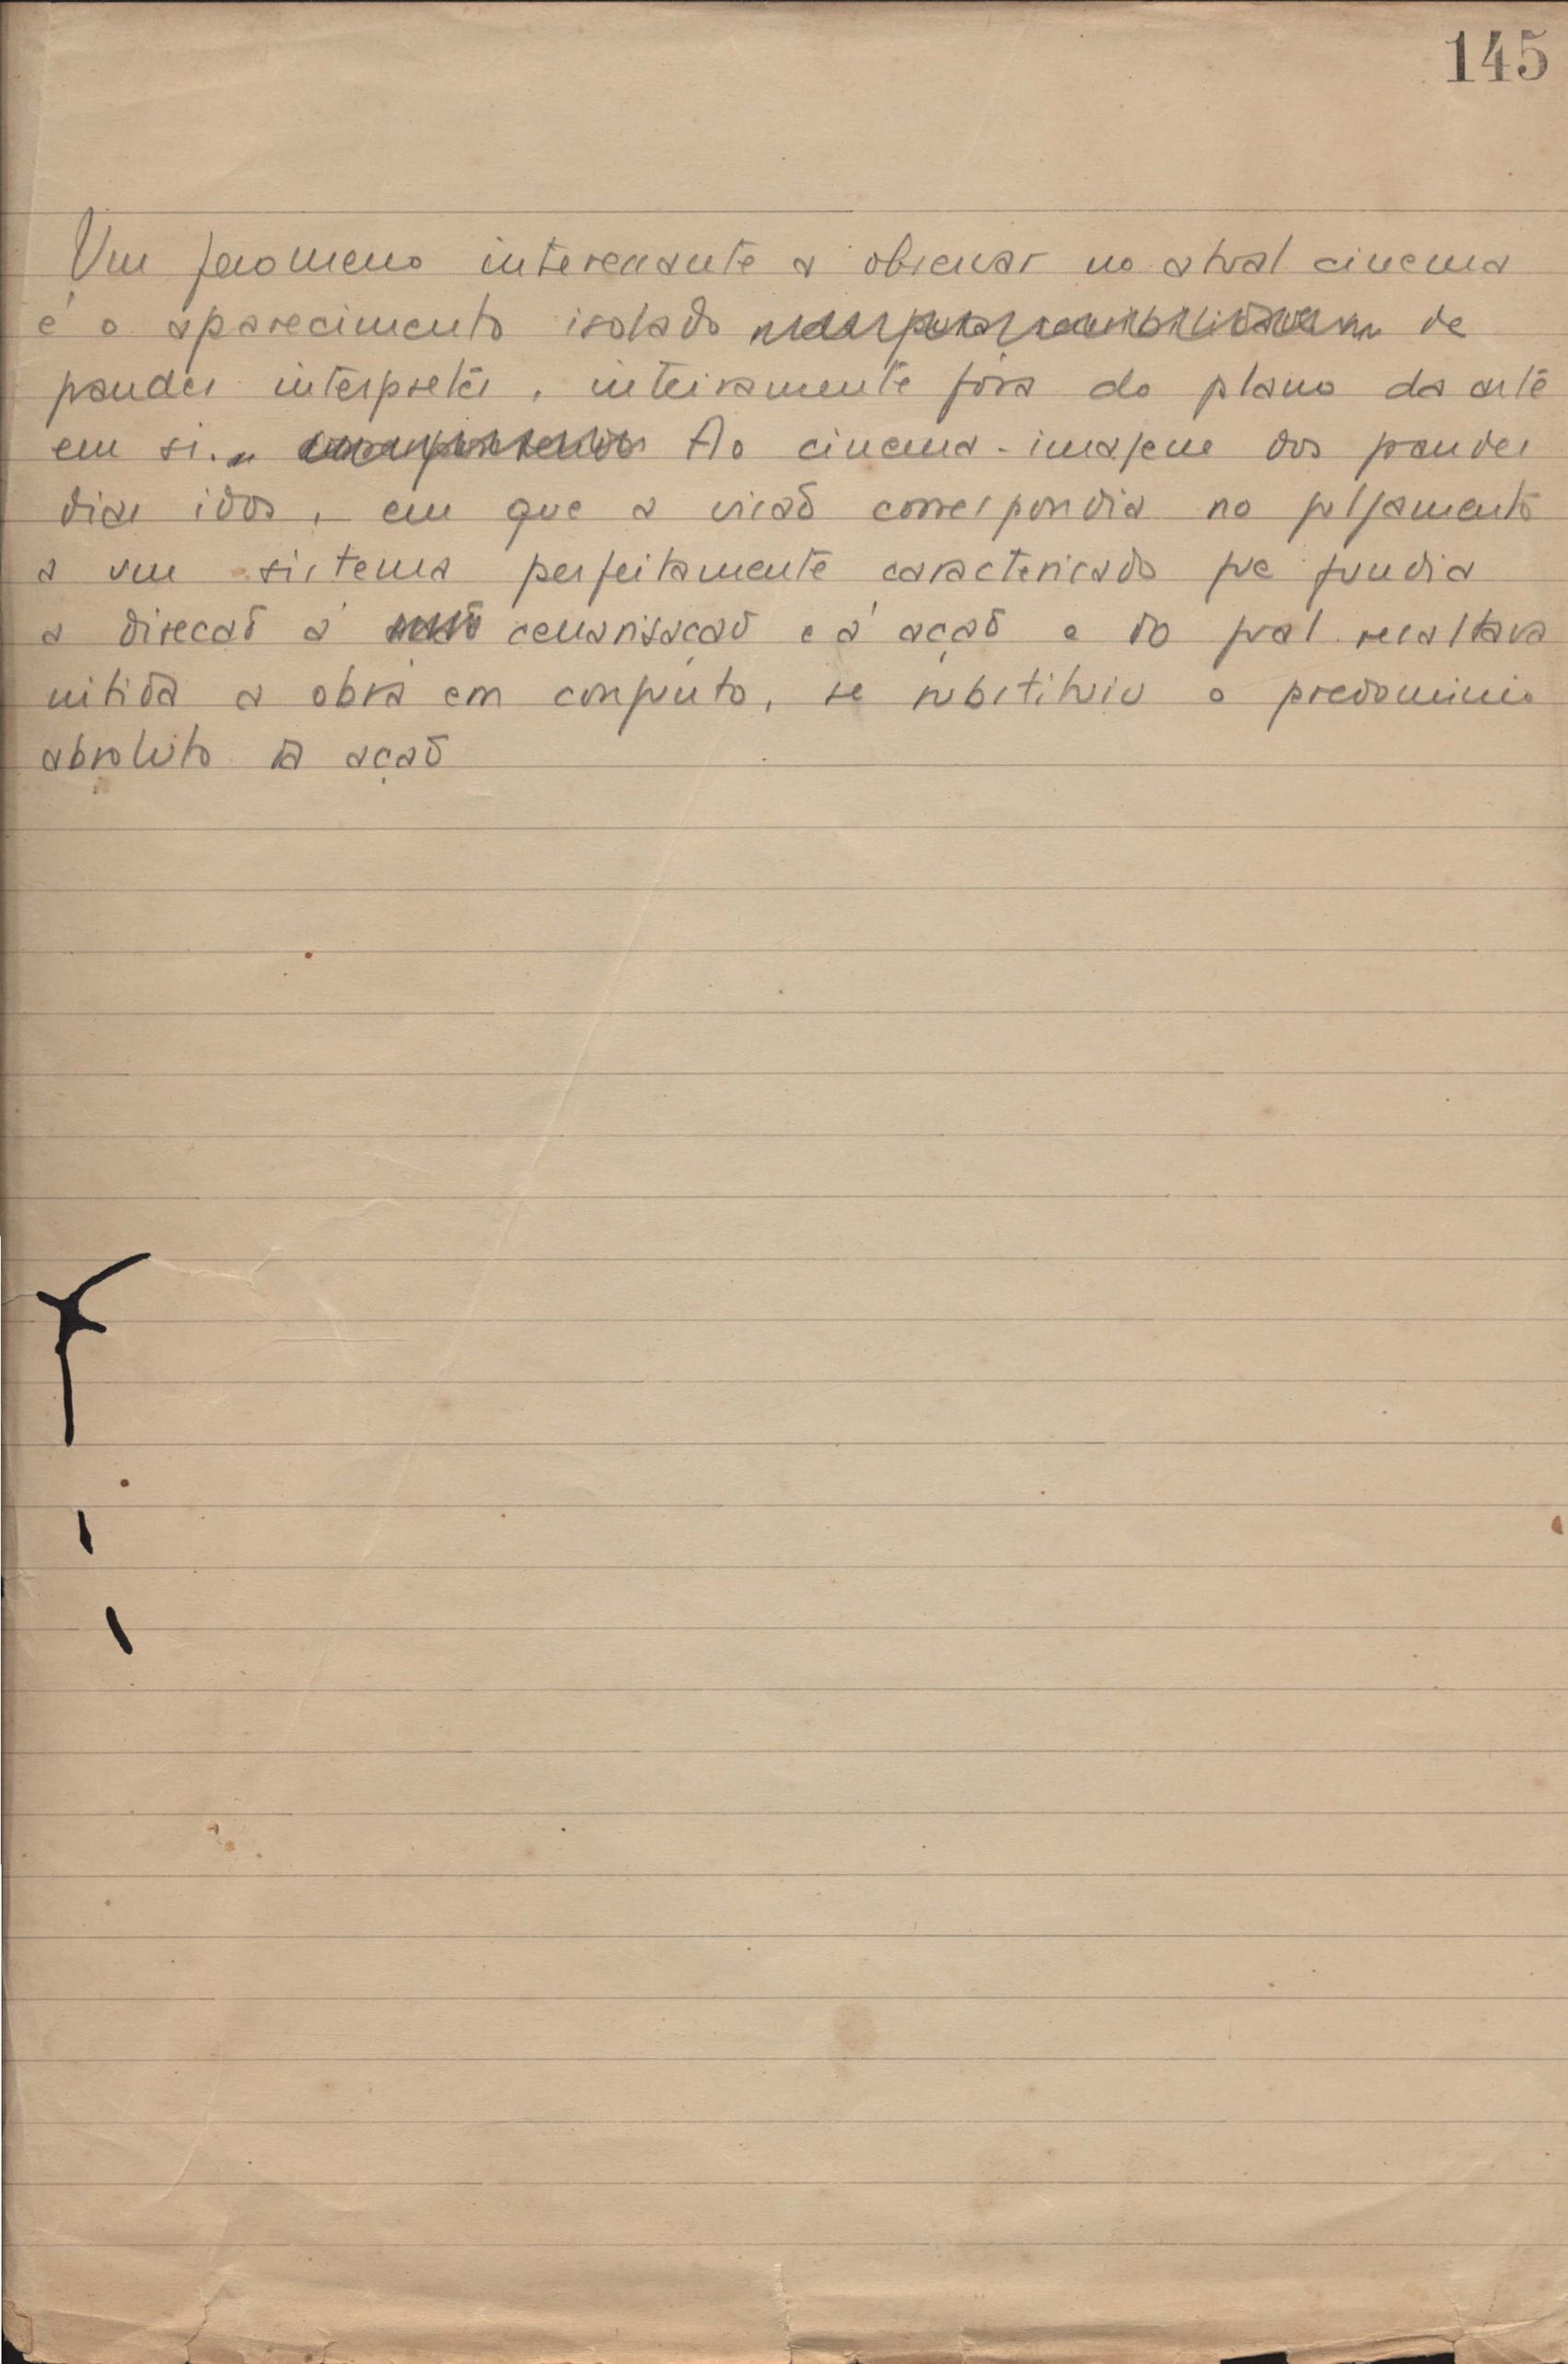 145
Um fenomeno interessante a observar no atual cinema
é o aparecimento isolado de
grandes interpretes, inteiramente fóra do plano da arte
em si. Ao cinema-imagem dos grandes
dias idos, em que a visaõ correspondia no julgamento
a um sistema perfeitamente caracterisado que fundia
a direcaõ á cenarisacaõ e á açaõ e do qual resaltava
nitida a obra em conjunto, se substituiu o predominio
absoluto da açaõ